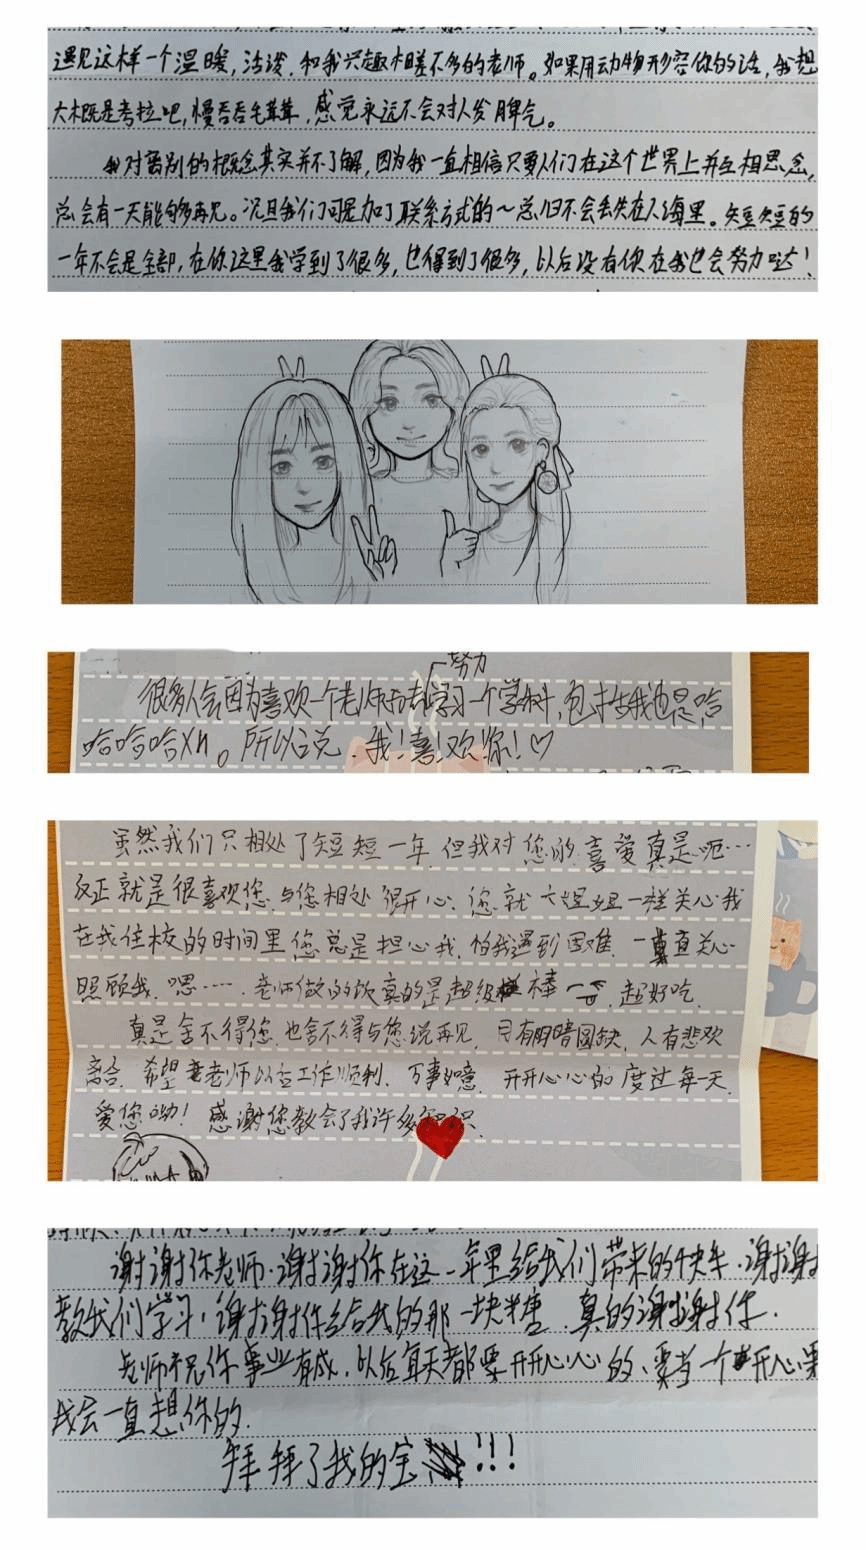 遇见这样一个温暖，活泼，和我兴趣相差不多的老师。如果用动物形容你的话，我想
大概是考拉吧，慢吞吞毛茸茸，感觉永远不会对人发脾气。
我对离别的概念其实并不了解，因为我一直相信只要人们在这个世界上并互相思念，
总会有一天能够再见。况且我们可是加了联系方式的～总归不会丢失在人海里。短短的
一年不会是全部，在你这里我学到了很多，也得到了很多，以后没有你在我也会努力哒！
努力
很多人会因为喜欢一个老师而去学习一个学科，包括我也是哈
哈哈哈xn。所以说，我！喜！欢你！♡
虽然我们只相处了短短一年，但我对您的喜爱真是呃…
反正就是很喜欢您，与您相处很开心、您就大姐姐一样关心我
在我住校的时间里您总是担心我，怕我遇到困难，一直关心
照顾我，嗯……，老师做的饭真的是超级棒，超好吃，
真是舍不得您，也舍不得与您说再见，月有阴晴圆缺，人有悲欢
离合，希望老师以后工作顺利、万事如意，开开心心的度过每一天，
爱您呦！感谢您教会了我许多知识
谢谢你老师，谢谢你在这一年里给我们带来的快乐，谢谢
教我们学习，谢谢你给我的那一块糖，真的谢谢你，
老师祝你事业有成，以后每天都要开开心心的、要当一个开心果
我会一直想你的，
拜拜了我的宝!!!